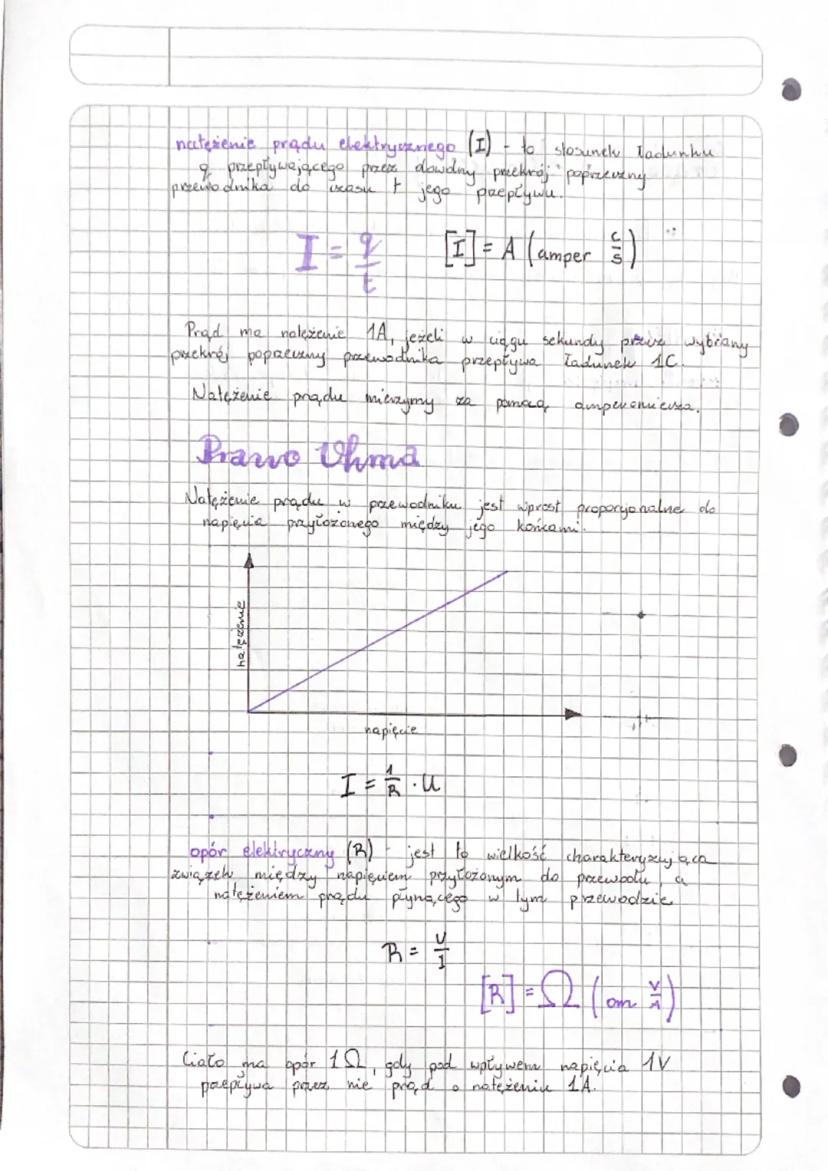 natężenie prądu elektrycznego (I) - to stosunek ładunku
q przepływającego przez dowolny przekrój poprzeczny
przewodnika do czasu t jego przepływu.
I = q/t [I] = A (amper C/S)
Prąd ma natężenie 1A, jeżeli w ciągu sekundy przez wybrany
przekrój poprzeczny przewodnika przepływa ładunek 1C.
Natężenie prądu mierzymy za pomocą amperomierza.
Prawo Ohma
Natężenie prądu w przewodniku jest wprost proporcjonalne do
napięcia przyłożonego między jego końcami.
natężenie
napięcie
I = 1/R · U
opór elektryczny (R) - jest to wielkość charakteryzująca
związek między napięciem przyłożonym do przewodu, a
natężeniem prądu płynącego w tym przewodzie
R = U/I
[R] = Ω (om V/A)
Ciało ma opór 1Ω, gdy pod wpływem napięcia 1V
przepływa przez nie prąd o natężeniu 1A.